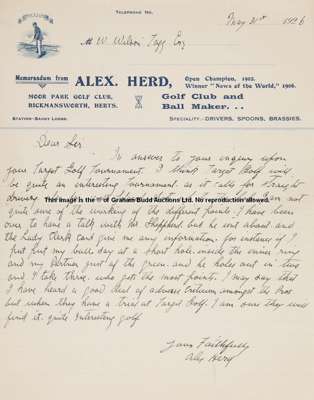 TELEPHONE NO.
May 21st 1926
W. Wilson Tagg Esq
Memorandum from ALEX. HERD, Open Champion, 1902.
Winner "News of the World," 1906.
MOOR PARK GOLF CLUB,
RICKMANSWORTH, HERTS.
Golf Club and
Ball Maker. . .
STATION—SANDY LODGE.
SPECIALITY—DRIVERS, SPOONS, BRASSIES.
Dear Sir,
In answer to your enquiry upon
your Target Golf Tournament. I think Target Golf will
be quite an interesting Tournament as it calls for straight
driving
This image is the © of Graham Budd Auctions Ltd. No reproduction allowed.
I am not
quite sure of the working of the different points. I have been
over to have a talk with Mr Shepperd but he went about and
the Lady Clerk cant give me any information. for instance if I
put my ball day at a short hole inside the inner ring
and my partner just of the green and he holes out in two
and I take three. who gets the most points. I may say that
I have heard a good deal of adverse Critisim amongst the Pros
but when they have a trial at Target Golf. I am sure they will
find it quite Interesting golf
Yours Faithfully
Alex Herd